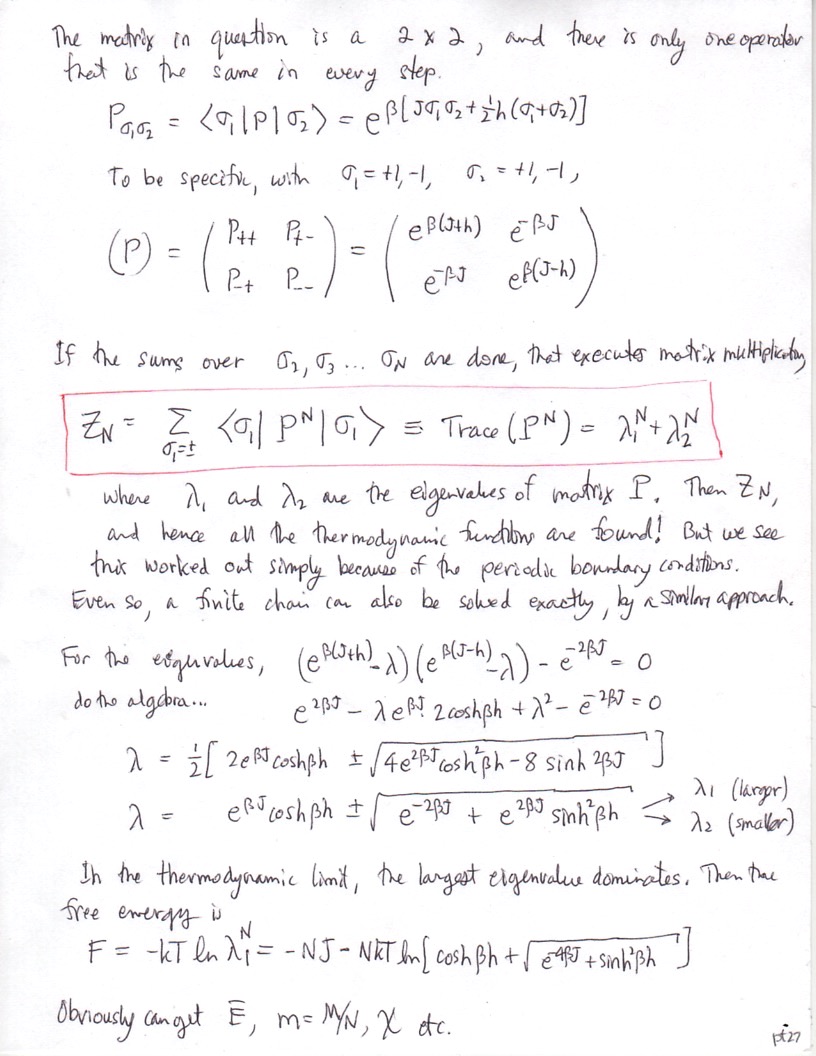 The matrix in question is a 2 x 2, and there is only one operator
that is the same in every step.
P_{σ₁σ₂} = ⟨σ₁|P|σ₂⟩ = e^{β[Jσ₁σ₂ + ½h(σ₁+σ₂)]}
To be specific, with σ₁ = +1,-1, σ₂ = +1,-1,
(P) = ( P₊₊ P₊₋ ; P₋₊ P₋₋ ) = ( e^{β(J+h)} e^{-βJ} ; e^{-βJ} e^{β(J-h)} )
If the sums over σ₂, σ₃ ... σ_N are done, that executes matrix multiplication
Z_N = Σ_{σ₁=±} ⟨σ₁| P^N |σ₁⟩ ≡ Trace (P^N) = λ₁^N + λ₂^N
where λ₁ and λ₂ are the eigenvalues of matrix P. Then Z_N,
and hence all the thermodynamic functions are found! But we see
this worked out simply because of the periodic boundary conditions.
Even so, a finite chain can also be solved exactly, by a similar approach.
For the eigenvalues, (e^{β(J+h)} - λ)(e^{β(J-h)} - λ) - e^{-2βJ} = 0
do the algebra... e^{2βJ} - λ e^{βJ} · 2coshβh + λ² - e^{-2βJ} = 0
λ = ½[ 2e^{βJ} coshβh ± √(4e^{2βJ} cosh²βh - 8 sinh 2βJ) ]
λ = e^{βJ} coshβh ± √(e^{-2βJ} + e^{2βJ} sinh²βh) → λ₁ (larger)
→ λ₂ (smaller)
In the thermodynamic limit, the largest eigenvalue dominates. Then the
free energy is
F = -kT ln λ₁^N = -NJ - NkT ln[ coshβh + √(e^{-4βJ} + sinh²βh) ]
Obviously can get E̅, m = M/N, χ etc.